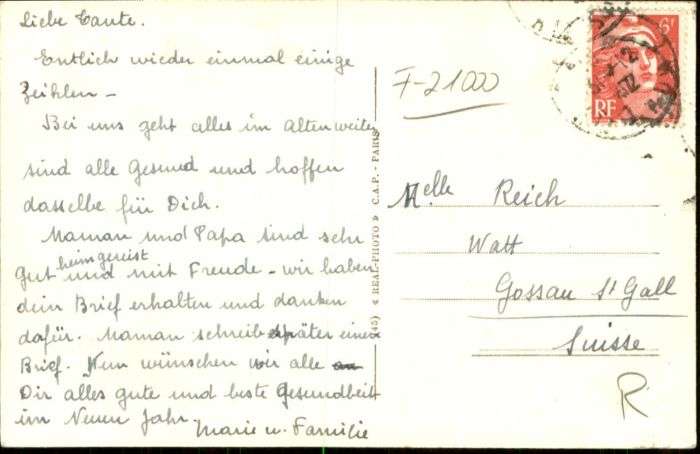 Liebe Tante.
Entlich wieder einmal einige
Zeihlen –
Bei uns geht alles im Alten weiter
sind alle Gesund und hoffen
dasselbe für Dich.
Maman und Papa sind sehr
Gut heimgereist und mit Freude – wir haben
dein Brief erhalten und danken
dafür. Maman schreib später einen
Brief. Nun wünschen wir alle
Dir alles gute und beste Gesundheit
im Neuen Jahr.
Marie u. Familie
(45) « REAL-PHOTO » C.A.P. - PARIS
F-21000
6F
RF
Melle. Reich
Watt
Gossau St Gall
Suisse
R